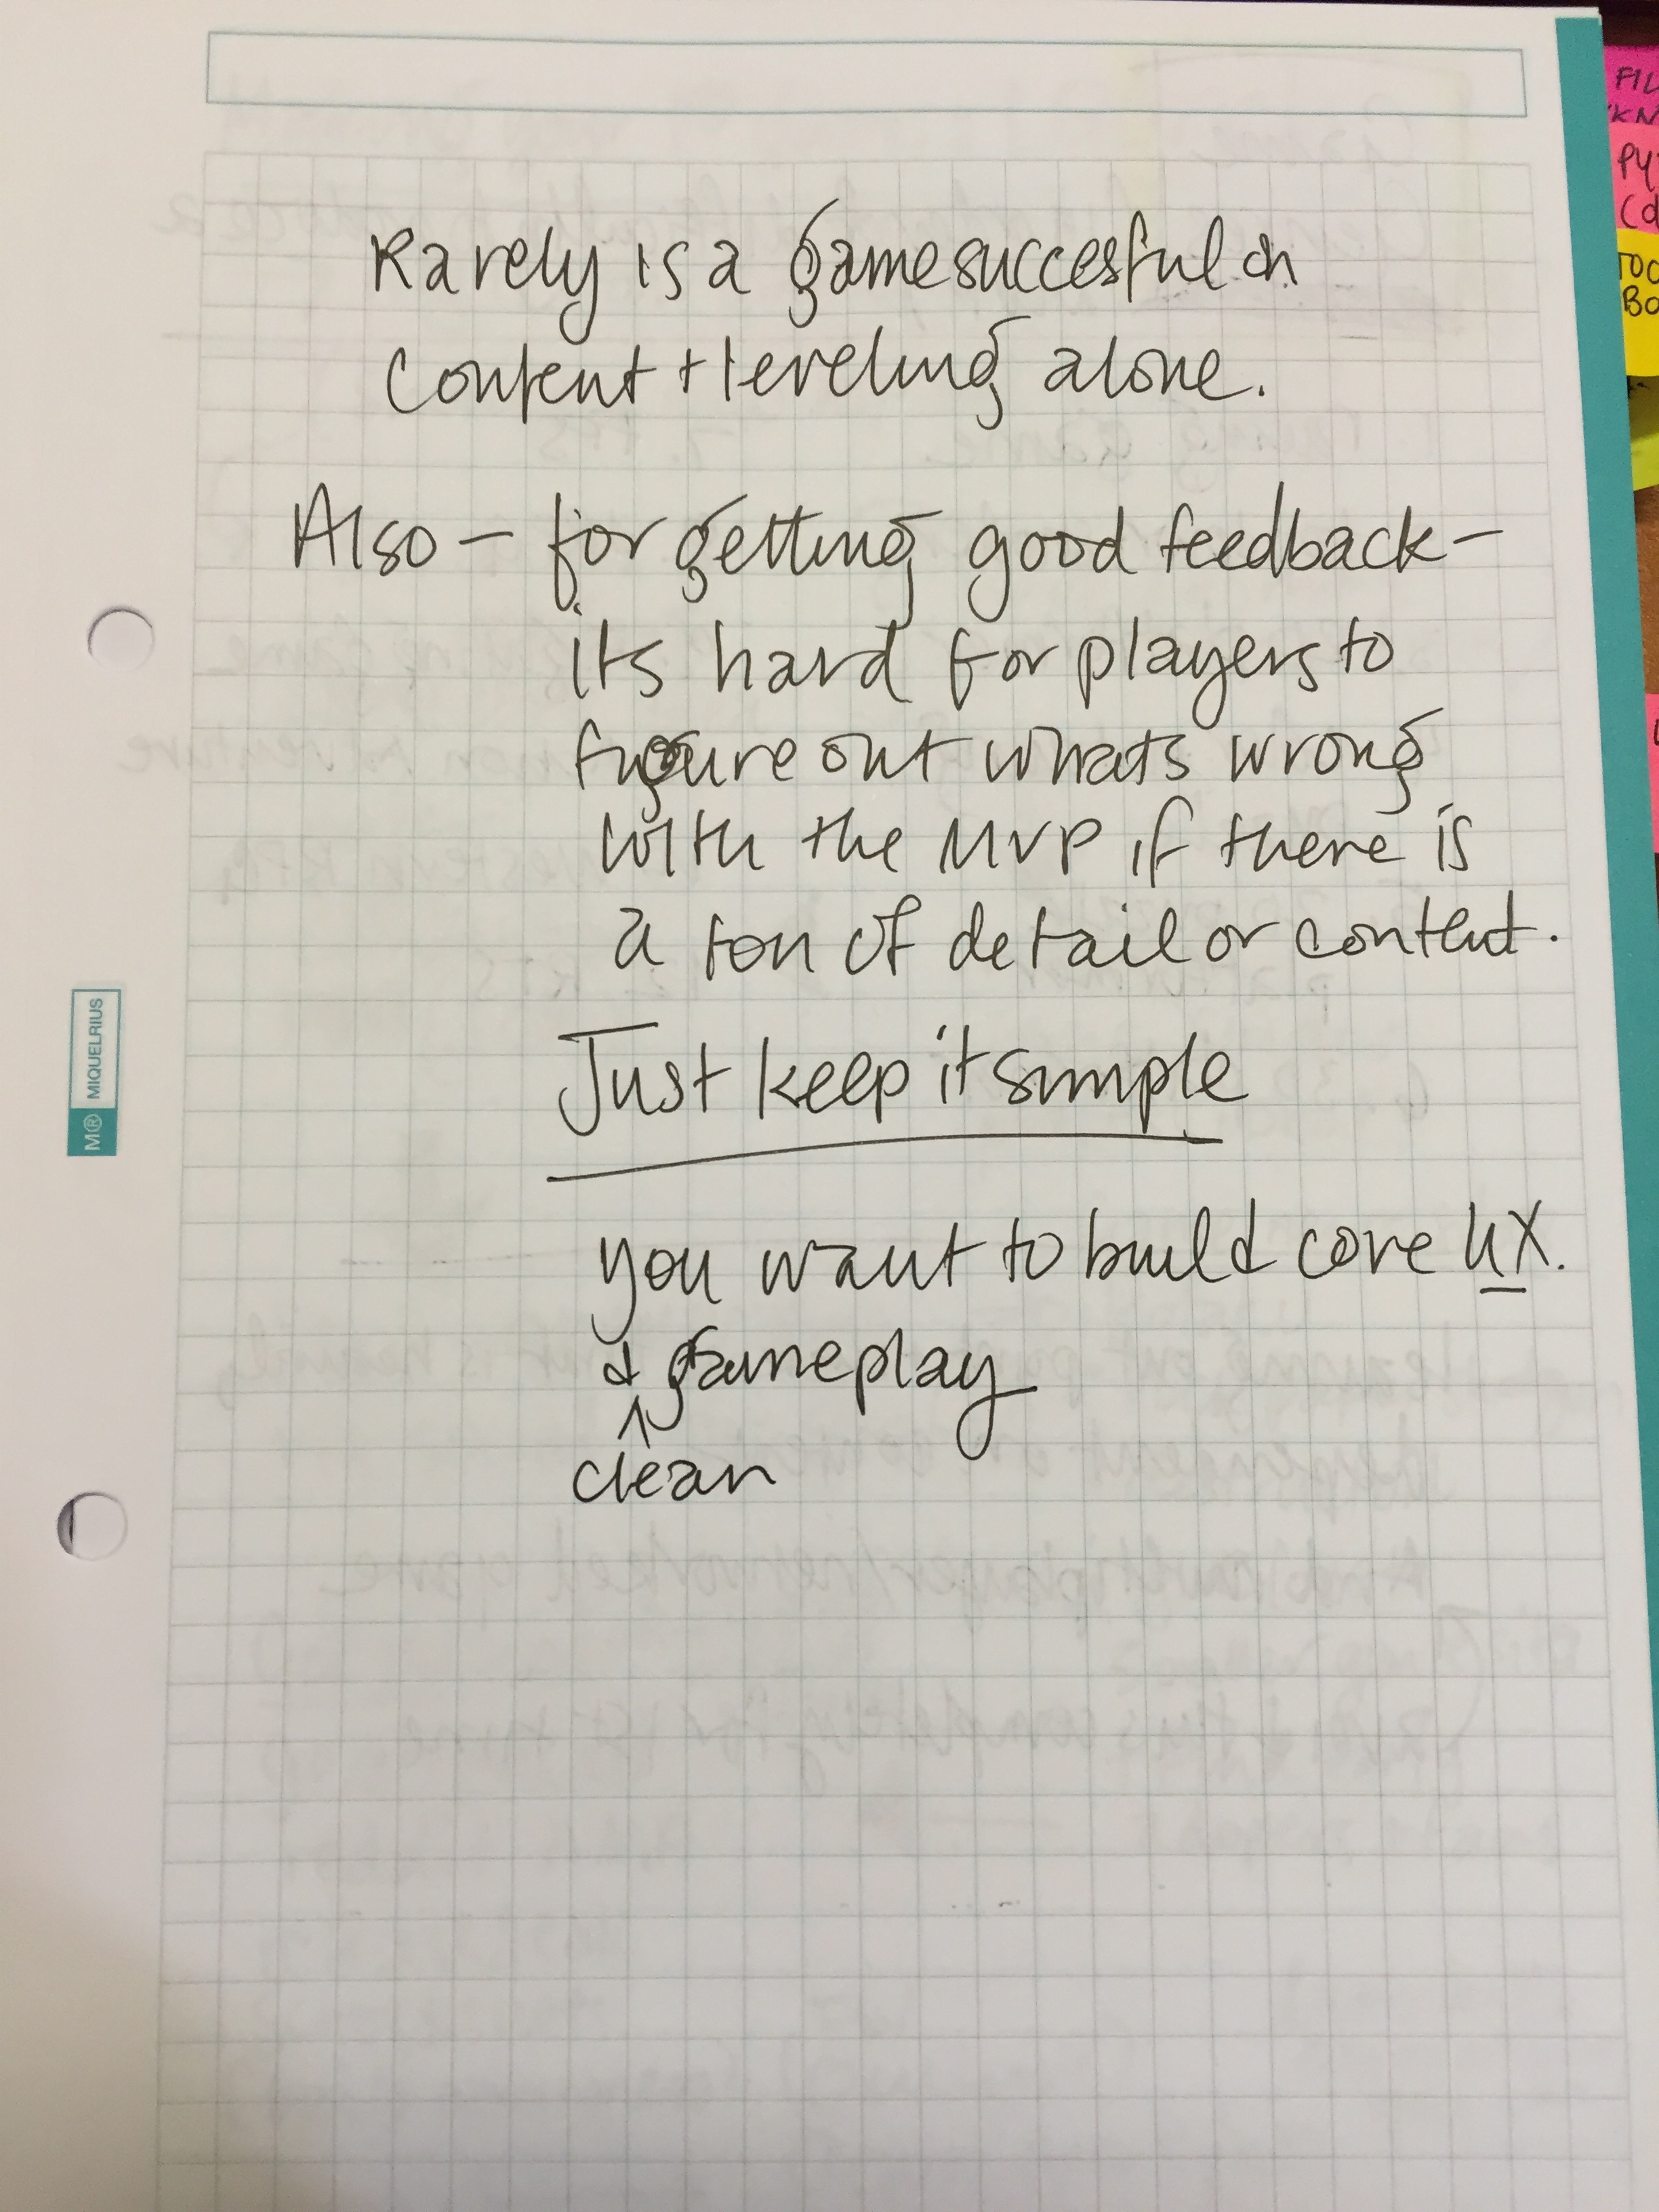 Rarely is a game succesful on
content + leveling alone.
Also – for getting good feedback –
its hard for players to
figure out whats wrong
with the MVP if there is
a ton of detail or content.
Just keep it simple
you want to build core UX.
& gameplay
↑
clean
M® MIQUELRIUS
FIL
KN
PY
(d
TOO
BO